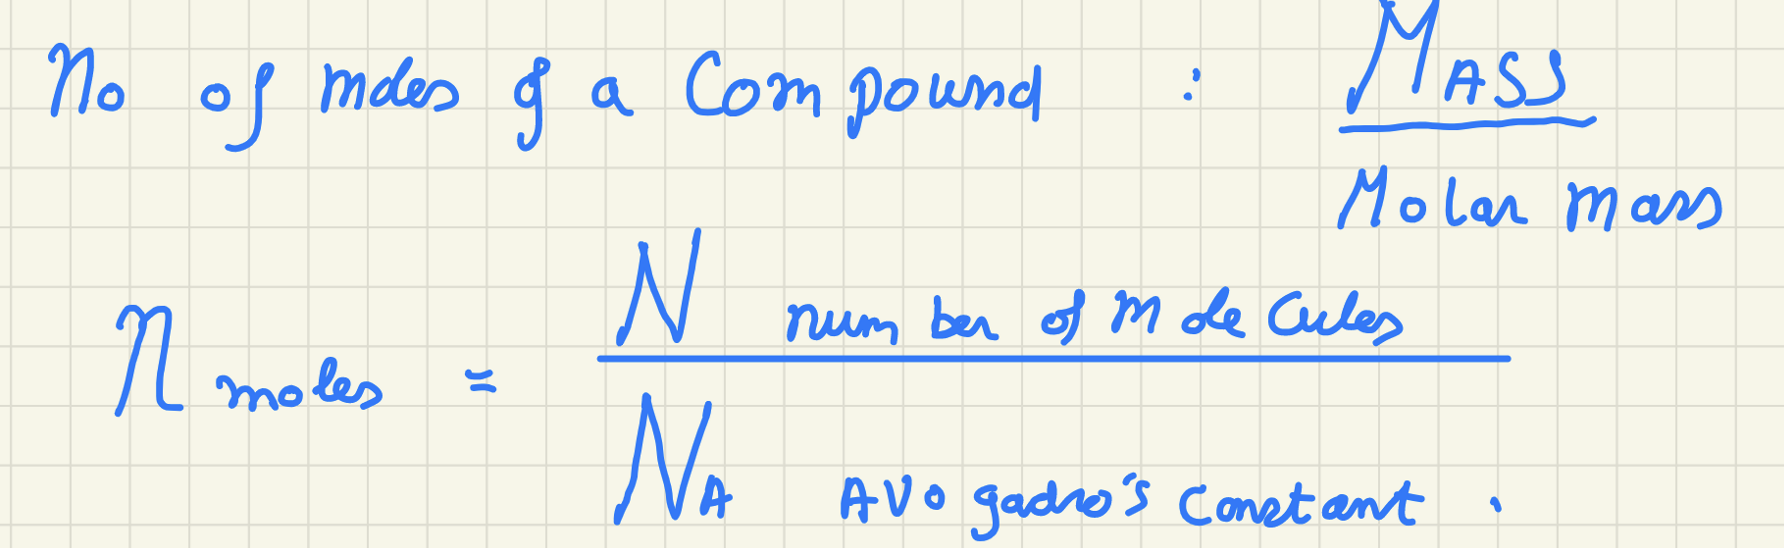 No of moles of a Compound : MASS
Molar mass
n moles = N number of molecules
NA Avogadro's constant .